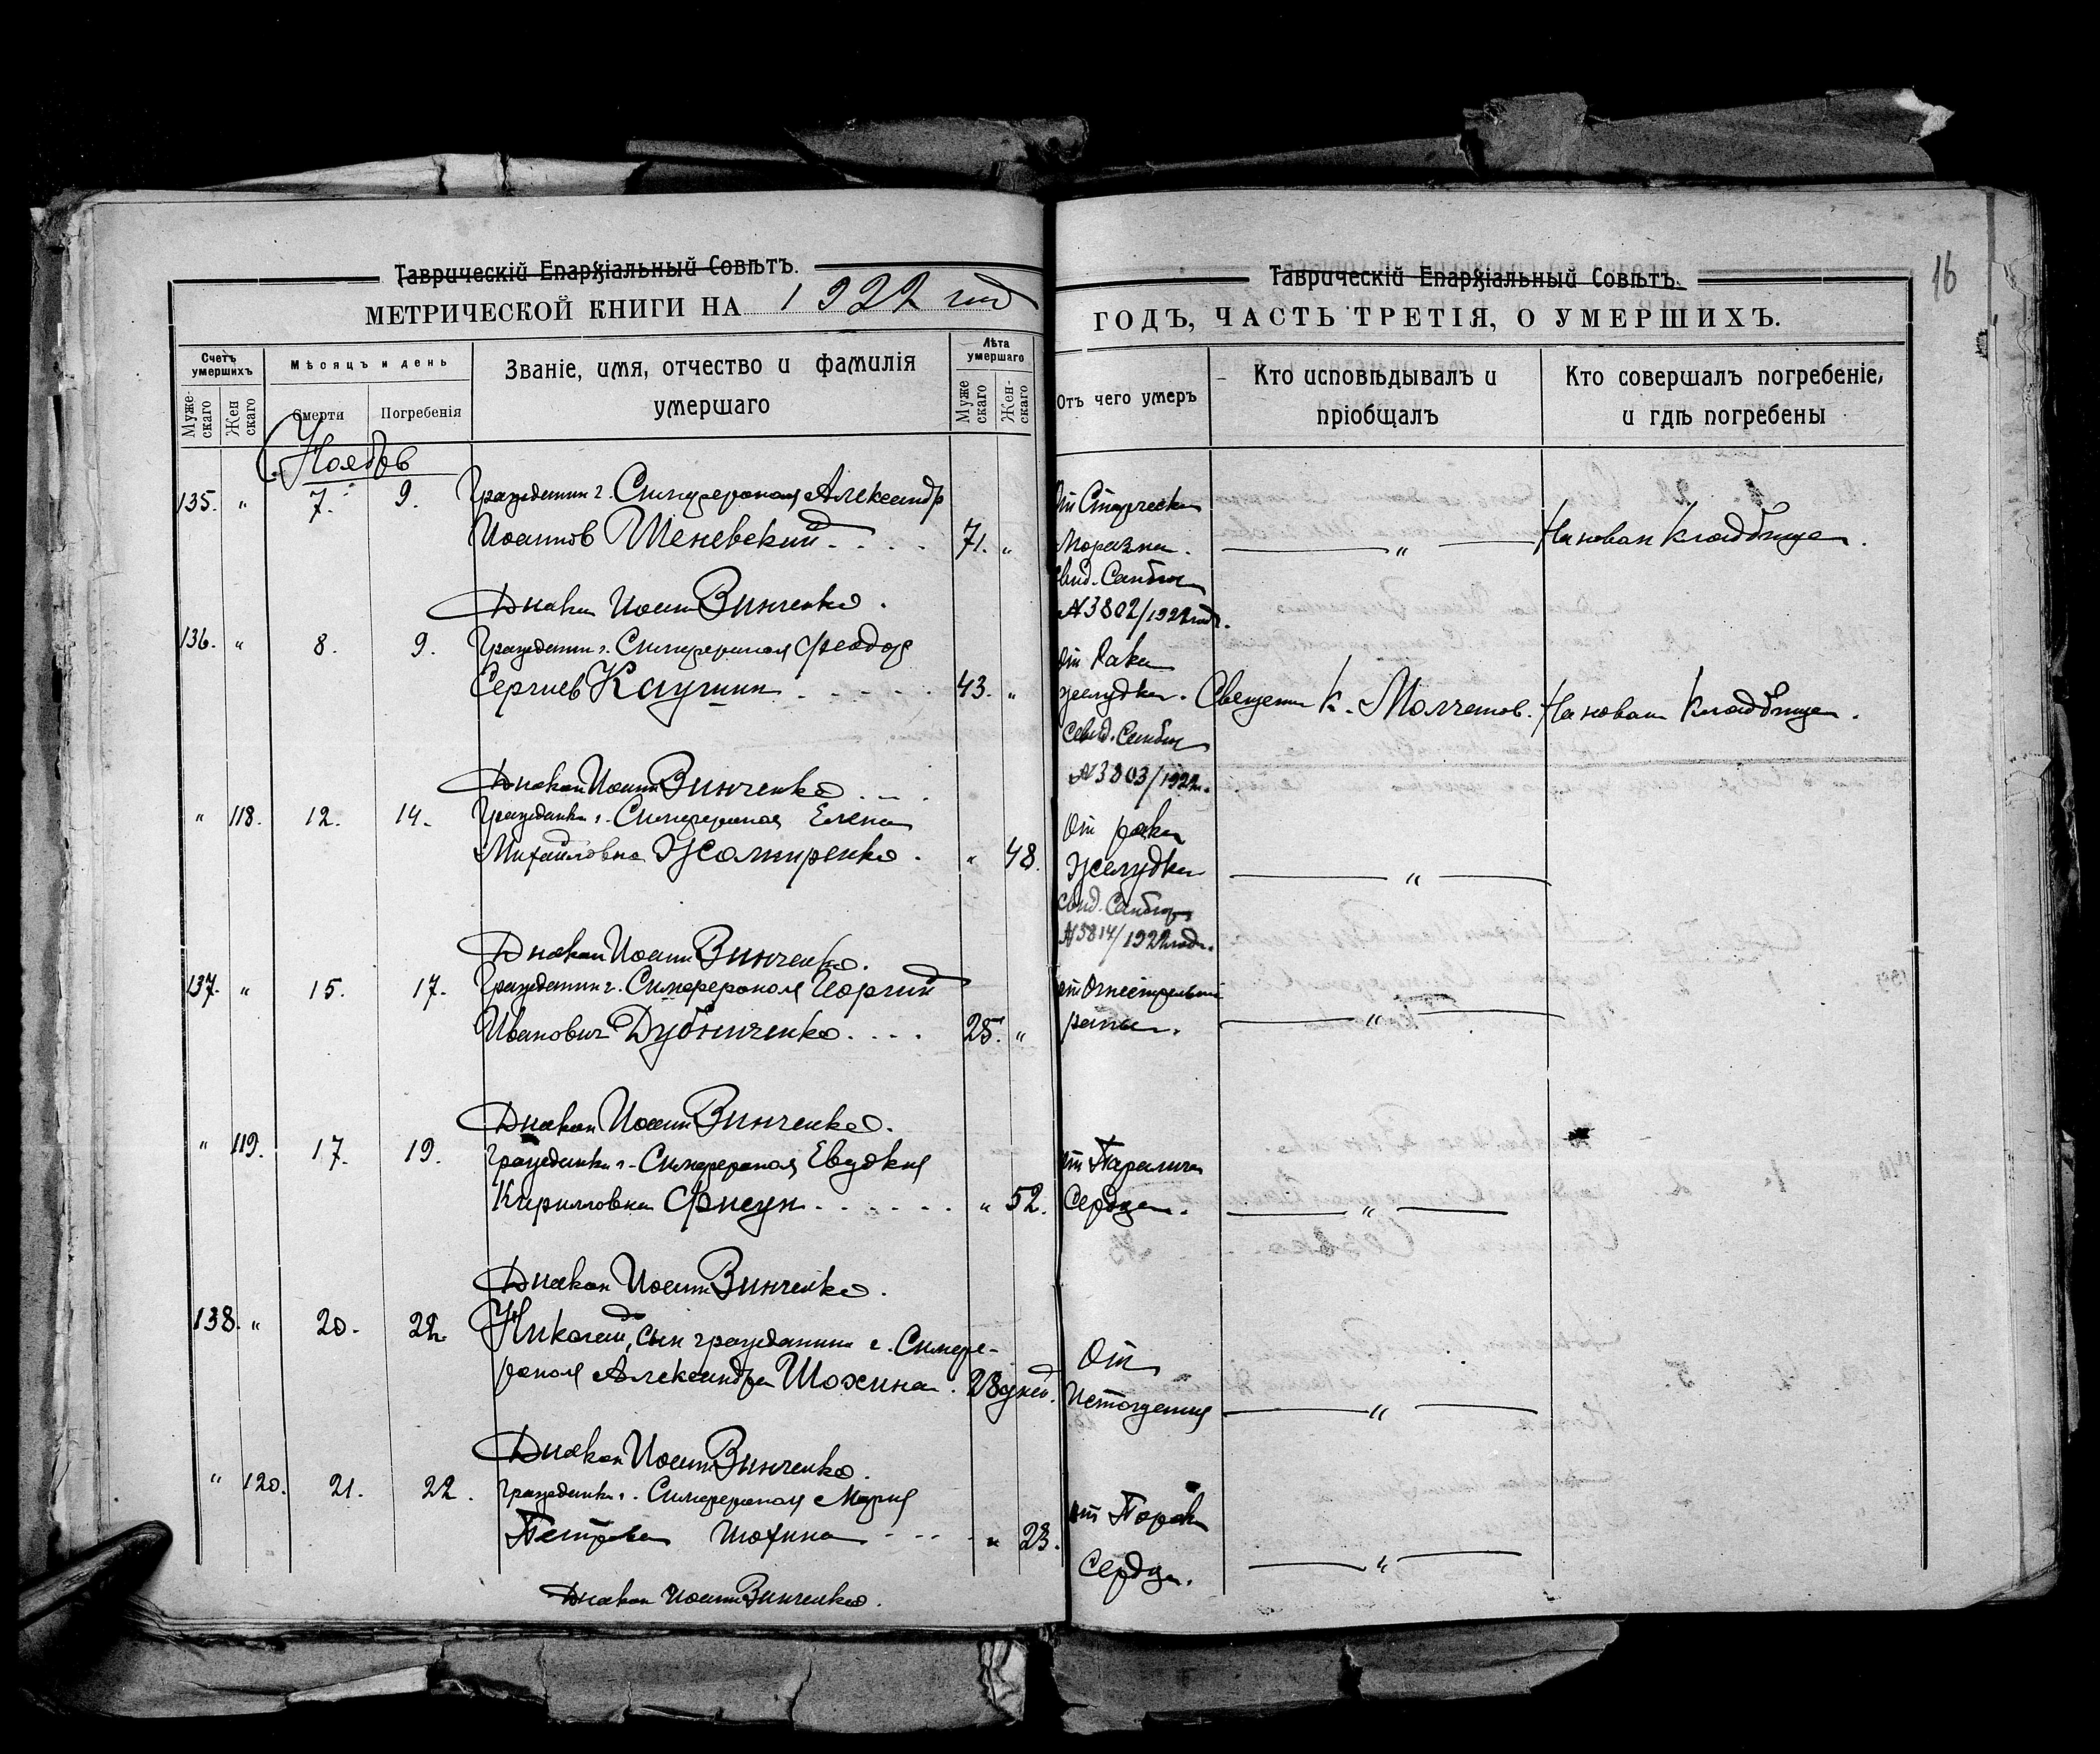 Таврическій Епархіальный Совѣтъ.
МЕТРИЧЕСКОЙ КНИГИ НА 1922 год
Счетъ умершихъ
Муже-скаго
Жен скаго
Мѣсяцъ и день
Смерти
Погребенія
Званіе, имя, отчество и фамилія
умершаго
Лѣта умершаго
Муже скаго
Жен-скаго
Ноябрь
135. " 7. 9. Гражданин г. Симферополя Александр
Иоаннов Шеневский 71. "
Диакон Иоанн Винченко.
136. " 8. 9. Гражданин г. Симферополя Феодор
Сергиев Каушин 43. "
Диакон Иоанн Винченко
" 118. 12. 14. Гражданка г. Симферополя Елена
Михайловна Жолтиренко. " 48.
Диакон Иоанн Винченко.
137. " 15. 17. Гражданин г. Симферополя Иоргий
Иванович Дубниченко 25. "
Диакон Иоанн Винченко.
" 119. 17. 19. Гражданка г. Симферополя Евдокия
Кирилловна Фисун " 52.
Диакон Иоанн Винченко.
138. " 20. 22. Николай, сын гражданина г. Симфе-
рополя Александра Шохина. 28 дней.
Диакон Иоанн Винченко.
" 120. 21. 22. Гражданка г. Симферополя Мария
Петровна Шохина " 23.
Диакон Иоанн Винченко.
16
Таврическій Епархіальный Совѣтъ.
ГОДЪ, ЧАСТЬ ТРЕТІЯ, О УМЕРШИХЪ.
Отъ чего умеръ
Кто исповѣдывалъ и
пріобщалъ
Кто совершалъ погребеніе,
и гдѣ погребены
От Старческ
Маразма. " На новом кладбище.
свид. Санбюро
№3802/1922 года.
От Рака
желудка. Священ К. Молчанов. На новом кладбище.
Свид. Санбюро
№3803/1922 г.
От рака
Желудка "
свид. Санбюро
№3814/1922 года.
от Огнестрельной
раны. "
от Паралича
Сердца. "
От
Истощения "
от Порока
Сердца. "